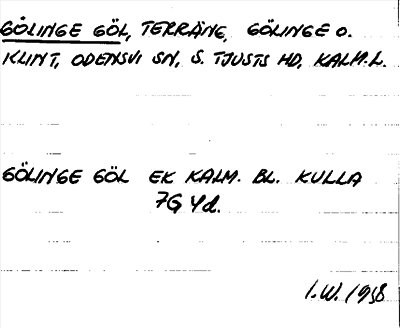 GÖLINGE GÖL, TERRÄNG, GÖLINGE O.
KLINT, ODENSVI SN, S. TJUSTS HD, KALM.L.
GÖLINGE GÖL EK KALM. BL. KULLA
7G Yd.
I.W. 1958